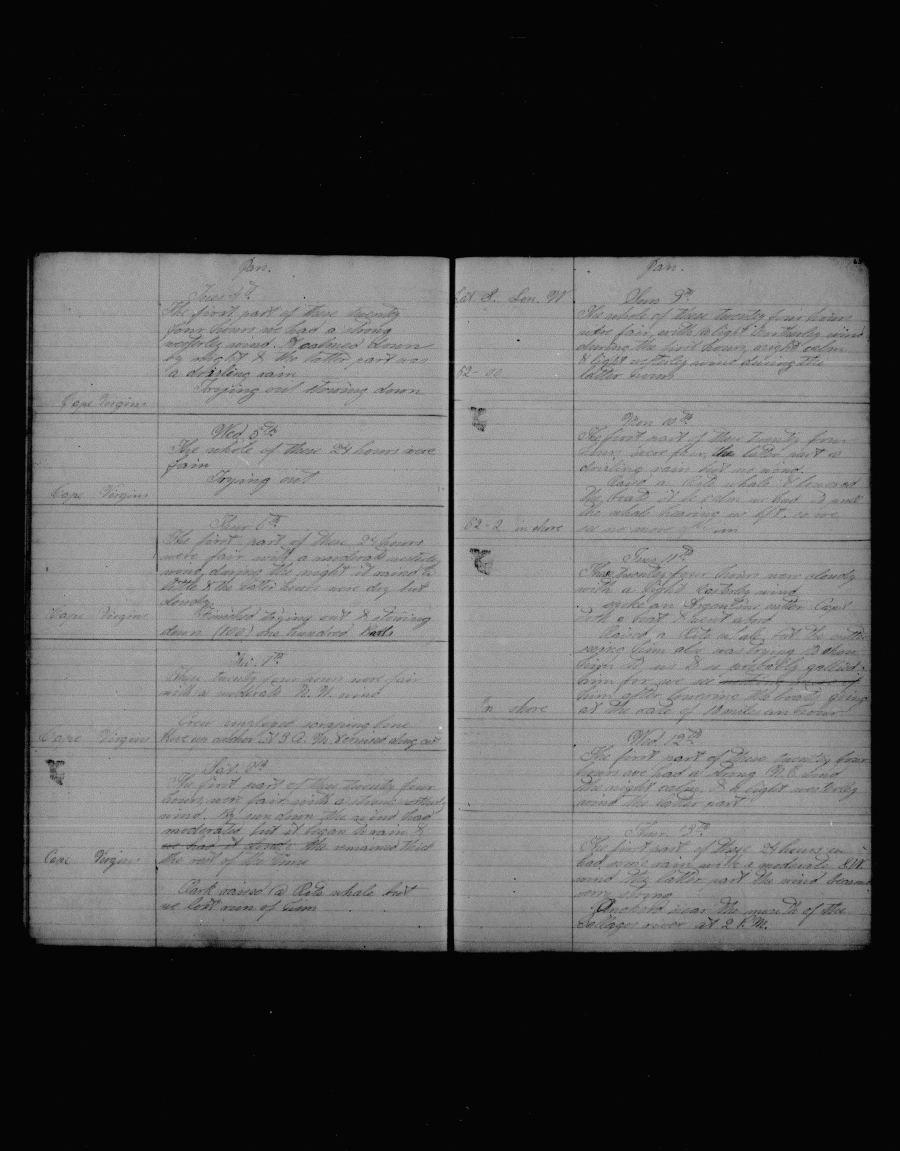 Jan.
Tues 4th
The first part of these twenty
four hours we had a strong
westerly wind. It calmed down
by night & the latter part was
a drizling rain
Trying out stowing down
Cape Virgins
Wed. 5th
The whole of these 24 hours were
fair
Trying out
Cape Virgins
Thur 6th
The first part of these 24 hours
were fair with a moderate westerly
wind, during the night it rained a
little & the latter hours were dry but
cloudy.
Finished trying out & stowing
Cape Virgins
down (100) one hundred Barls
Fri. 7th
These twenty four hours were fair
with a moderate N. W. wind
Crew employed scraping bone
Cape Virgins
Hove up anchor at 3 A. M. & cruised along
Sat. 8th
The first part of these twenty four
hours were fair with a strong westerly
wind. By sun down the wind had
moderated, but it began to rain &
the remained thick
Cape Virgins
the rest of the time
Clark raised (a) Rite whale but
we lost run of him
Jan.
Lat S. Lon. W.
Sun 9th
The whole of these twenty four hours
were fair with a light Northerly wind
during the first hours, night calm
& light westerly wind during the
52-00
latter hours
Mon 10th
The first part of these twenty four
hours were fair, the latter part a
drizling rain but no wind.
Raised a Rite whale & lowered
the boats it being calm we had to
the whale hearing us left. so we
52-2 in shore
see no more of him
Tues. 11th
These twenty four hours were cloudy
with a light Easterly wind
spoke an Argentine cutter Capt
with a boat & went abord
Raised a Rite whale, but the cutter
seeing him also was trying to show
him to us & so probably gallied
him for we see
him after lowering the boats going
In shore
at the rate of 10 miles an hour
Wed. 12th
The first part of these twenty four
hours we had a strong N. E. wind
the night calm, & a light westerly
wind the latter part
Thur. 13th
The first part of these 24 hours we
had some rain with a moderate S.W.
wind the latter part the wind became
very strong
Anchord near the mouth of the
Gallages river at 2 P.M.